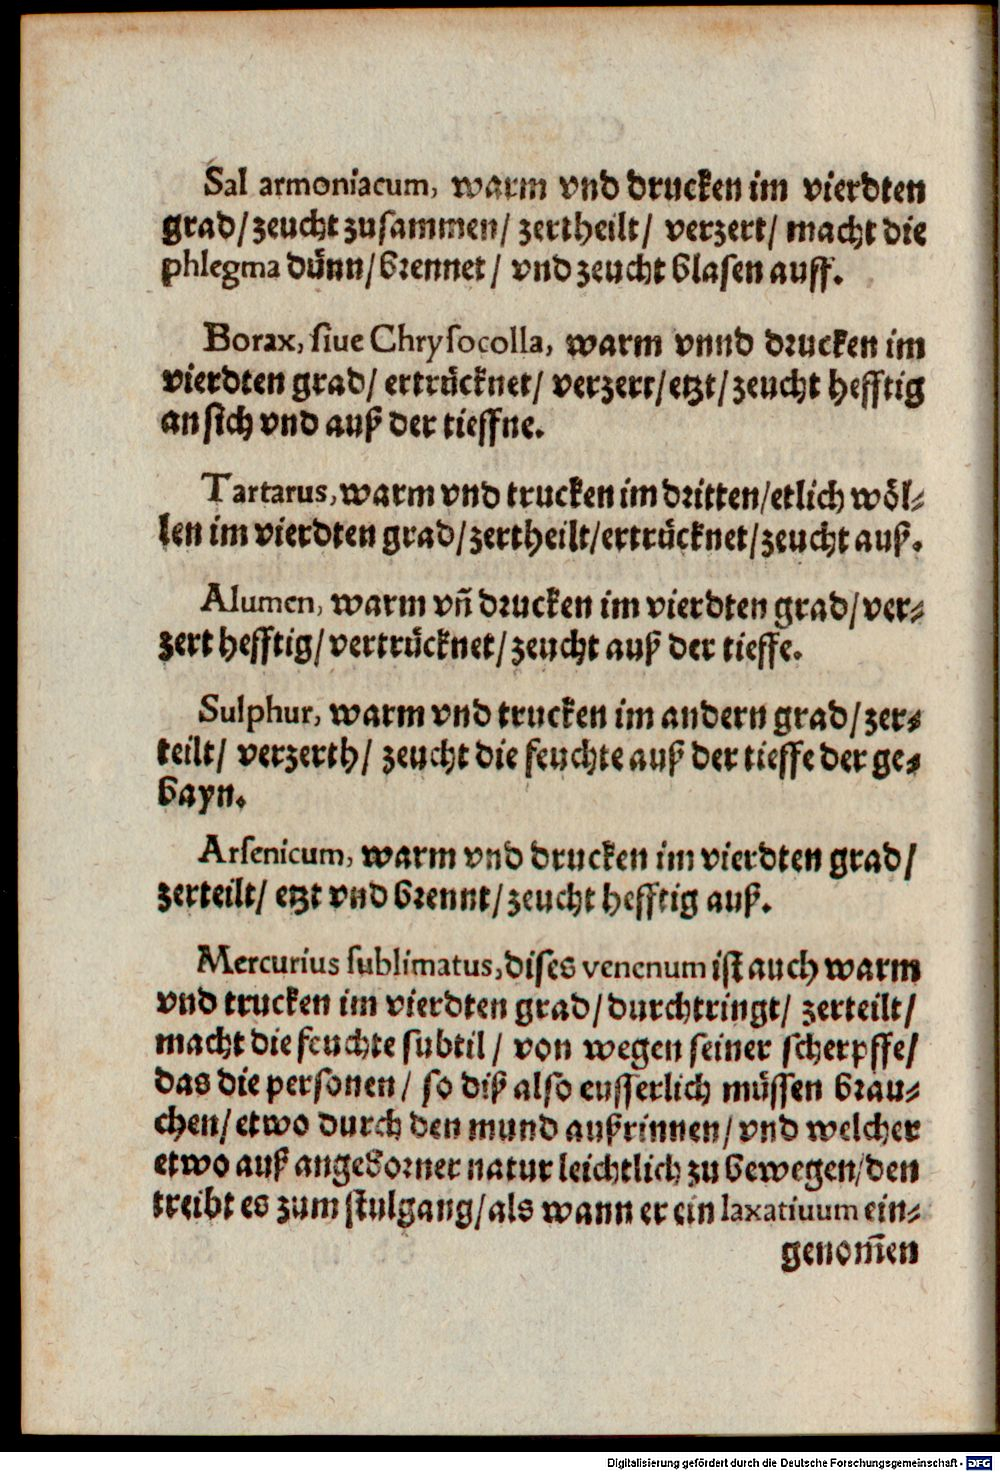 Sal armoniacum, warm vnd drucken im vierdten
grad/ zeucht zusammen/ zertheilt/ verzert/ macht die
phlegma dünn/ brennet/ vnd zeucht blasen auff.
Borax, siue Chrysocolla, warm vnnd drucken im
vierdten grad/ ertrücknet/ verzert/ etzt/ zeucht hefftig
an sich vnd auß der tieffne.
Tartarus, warm vnd trucken im dritten/ etlich wöl⸗
len im vierdten grad/ zertheilt/ ertrücknet/ zeucht auß.
Alumen, warm vn̄ drucken im vierdten grad/ ver⸗
zert hefftig/ vertrücknet/ zeucht auß der tieffe.
Sulphur, warm vnd trucken im andern grad/ zer⸗
teilt/ verzerth/ zeucht die feuchte auß der tieffe der ge⸗
bayn.
Arsenicum, warm vnd drucken im vierdten grad/
zerteilt/ etzt vnd brennt/ zeucht hefftig auß.
Mercurius sublimatus, dises venenum ist auch warm
vnd trucken im vierdten grad/ durchtringt/ zerteilt/
macht die feuchte subtil/ von wegen seiner scherpffe/
das die personen/ so diß also eusserlich müssen brau⸗
chen/ etwo durch den mund außrinnen/ vnd welcher
etwo auß angeborner natur leichtlich zu bewegen/ den
treibt es zum stulgang/ als wann er ein laxatiuum ein⸗
genom̄en
Digitalisierung gefördert durch die Deutsche Forschungsgemeinschaft - DFG